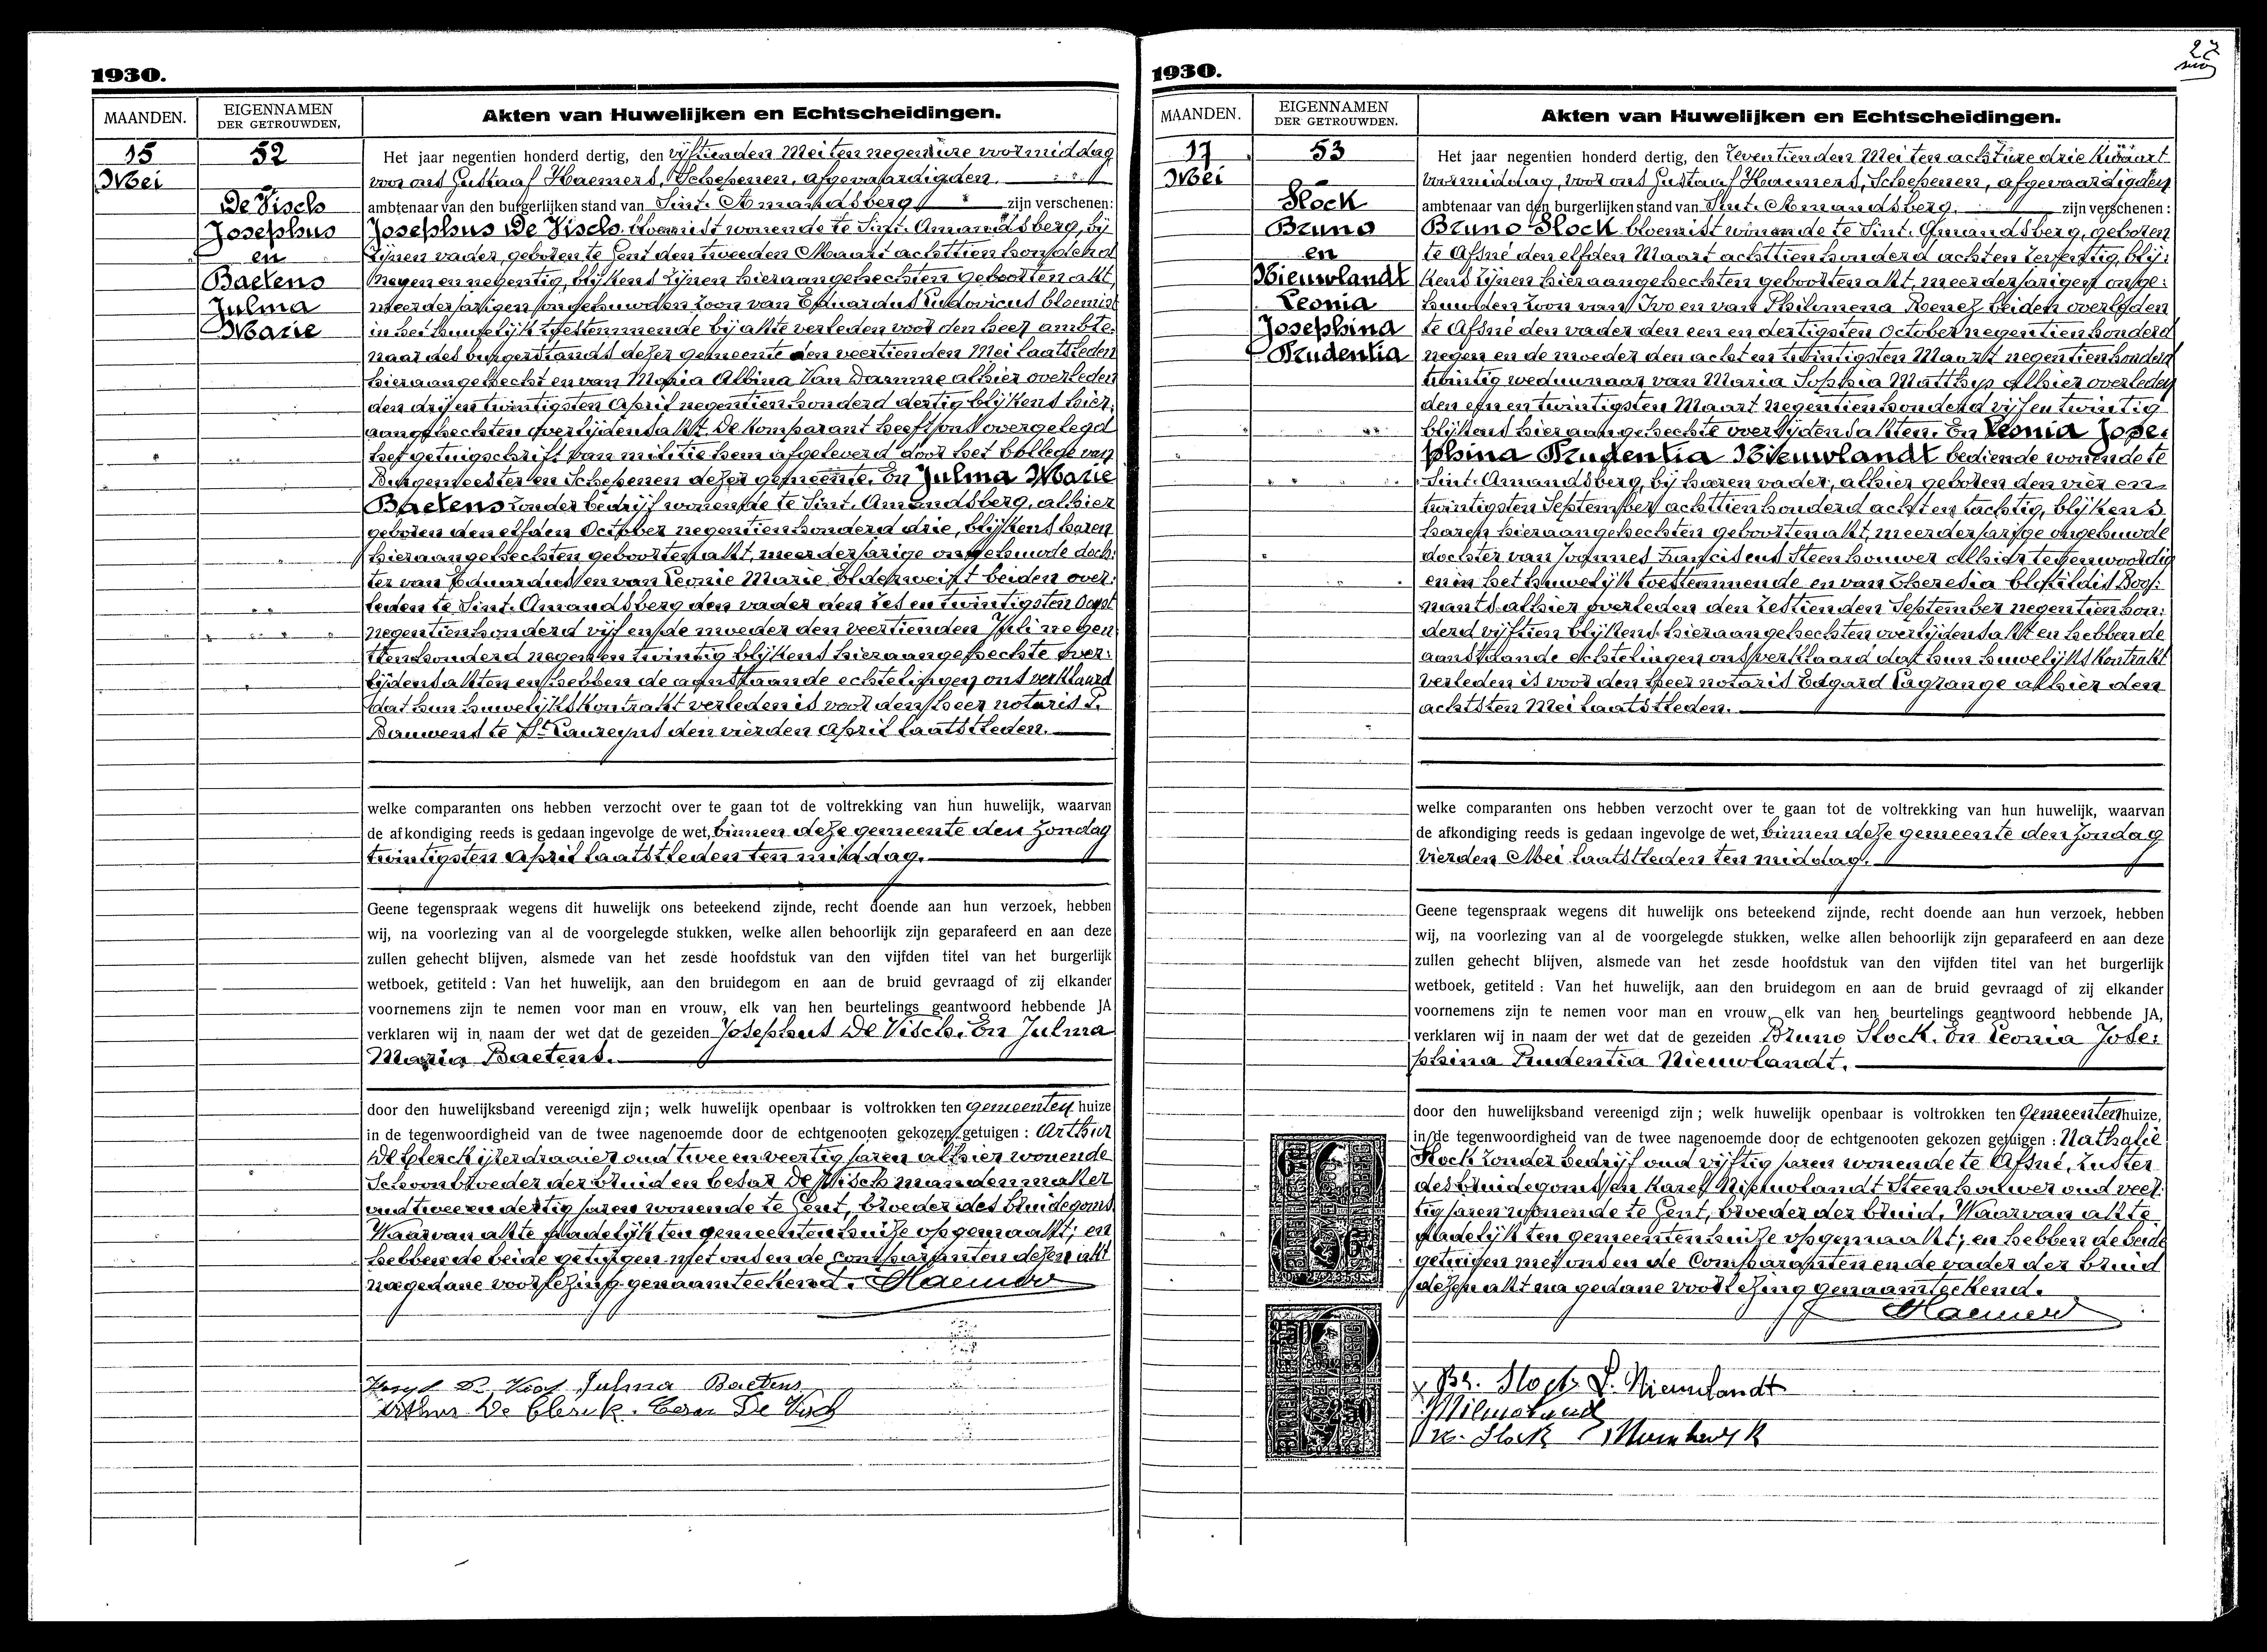 1930.
MAANDEN.
EIGENNAMEN
DER GETROUWDEN.
Akten van Huwelijken en Echtscheidingen.
15
Mei
52
De Visch
Josephus
en
Baetens
Julma
Marie
Het jaar negentien honderd dertig, den vijftienden Mei ten negen üre voormiddag
voor ons Gustaaf Haemers, Schepenen, afgevaardigden
ambtenaar van den burgerlijken stand van Sint. Amandsberg, zijn verschenen:
Josephus De Visch. bloemist wonende te Sint. Amandsberg, bij
zijnen vader, geboren te Gent den tweeden Maart achttien honderd
negen en negentig, blijkens zijnen hieraangehechten geboorten akt,
meerderjarigen ongehuwden zoon van Eduardus Ludovicus bloemist
in het huwelijk toestemmende bij akte verleden voor den heer ambte:
naar des burgerstands dezer gemeente den veertienden Mei laatstleden
hieraangehecht en van Maria Albina Van Damme alhier overleden
den drij en twintigsten April negentien honderd dertig blijkens hier:
aangehechten overlijdensakt. De komparant heeft ons overgelegd
het getuigschrift van militie hem afgeleverd door het College van
Burgemeester en Schepenen dezer gemeente. En Julma Marie
Baetens zonder bedrijf wonende te Sint. Amandsberg, alhier
geboren den elfden October negentien honderd drie, blijkens haren
hieraangehechten geboorten akt, meerderjarige ongehuwde doch:
ter van Eduardus en van Leonie Marie Elderweirt beiden over:
leden te Sint. Amandsberg den vader den zes en twintigsten Oogst
negentien honderd vijf en de moeder den veertienden Juli negen
tien honderd negen en twintig blijkens hieraangehechte over:
lijdensakten en hebben de aanstaande echtelingen ons verklaard
dat hun huwelijkskontrakt verleden is voor den heer notaris L.
Bauwens te St. Laureyns den vierden April laatstleden.
welke comparanten ons hebben verzocht over te gaan tot de voltrekking van hun huwelijk, waarvan
de afkondiging reeds is gedaan ingevolge de wet, binnen deze gemeente den Zondag
twintigsten April laatstleden ten middag.
Geene tegenspraak wegens dit huwelijk ons beteekend zijnde, recht doende aan hun verzoek, hebben
wij, na voorlezing van al de voorgelegde stukken, welke allen behoorlijk zijn geparafeerd en aan deze
zullen gehecht blijven, alsmede van het zesde hoofdstuk van den vijfden titel van het burgerlijk
wetboek, getiteld : Van het huwelijk, aan den bruidegom en aan de bruid gevraagd of zij elkander
voornemens zijn te nemen voor man en vrouw, elk van hen beurtelings geantwoord hebbende JA
verklaren wij in naam der wet dat de gezeiden Josephus De Visch. En Julma
Maria Baetens.
door den huwelijksband vereenigd zijn; welk huwelijk openbaar is voltrokken ten gemeenten huize
in de tegenwoordigheid van de twee nagenoemde door de echtgenooten gekozen getuigen : Arthur
De Clerck ijzerdraaier oud twee en veertig jaren alhier wonende
Schoonbroeder der bruid en Cesar De Visch mandenmaker
oud twee en dertig jaren wonende te Gent, broeder des bruidegoms
Waarvan akte dadelijk ten gemeentenhuize opgemaakt; en
hebben de beide getuigen met ons en de comparanten dezen akt
na gedane voorlezing genaamteekend. Haemers
Julma Baetens
Arthur De Clerck. Cesar De Visch
1930.
27
MAANDEN.
EIGENNAMEN
DER GETROUWDEN.
Akten van Huwelijken en Echtscheidingen.
17
Mei
53
Slock
Bruno
en
Nieuwlandt
Leonia
Josephina
Prudentia
Het jaar negentien honderd dertig, den zeventienden Mei ten acht üre drie kwaart
voormiddag, voor ons Gustaaf Haemers, Schepenen, afgevaardigden
ambtenaar van den burgerlijken stand van Sint. Amandsberg. zijn verschenen :
Bruno Slock bloemist wonende te Sint. Amandsberg, geboren
te Afsné den elfden Maart achttien honderd acht en zeventig, blij:
kens zijnen hieraangehechten geboorten akt, meerderjarigen onge:
huwden zoon van Ivo en van Philomena Roenez beiden overleden
te Afsné den vader den een en dertigsten October negentien honderd
negen en de moeder den acht en twintigsten Maart negentien honderd
twintig weduwnaar van Maria Sophia Matthys Alhier overleden
den een en twintigsten Maart negentien honderd vijf en twintig
blijkens hieraangehechte overlijdensakten. En Leonia Jose:
phina Prudentia Nieuwlandt bediende wonende te
Sint. Amandsberg, bij haren vader, alhier geboren den vier en
twintigsten September achttien honderd acht en tachtig, blijkens
haren hieraangehechten geboorten akt, meerderjarige ongehuwde
dochter van Joannes Franciscus Steenhouwer alhier tegenwoordig
en in het huwelijk toestemmende en van Theresia Clotildis Bog:
mants alhier overleden den zestienden September negentien hon:
derd vijftien blijkens hieraangehechten overlijdensakt en hebben de
aanstaande echtelingen ons verklaard dat hun huwelijkskontrakt
verleden is voor den heer notaris Edgard Lagrange alhier den
achtsten Mei laatstleden.
welke comparanten ons hebben verzocht over te gaan tot de voltrekking van hun huwelijk, waarvan
de afkondiging reeds is gedaan ingevolge de wet, binnen deze gemeente den Zondag
vierden Mei laatstleden ten middag.
Geene tegenspraak wegens dit huwelijk ons beteekend zijnde, recht doende aan hun verzoek, hebben
wij, na voorlezing van al de voorgelegde stukken, welke allen behoorlijk zijn geparafeerd en aan deze
zullen gehecht blijven, alsmede van het zesde hoofdstuk van den vijfden titel van het burgerlijk
wetboek, getiteld : Van het huwelijk, aan den bruidegom en aan de bruid gevraagd of zij elkander
voornemens zijn te nemen voor man en vrouw, elk van hen beurtelings geantwoord hebbende JA,
verklaren wij in naam der wet dat de gezeiden Bruno Slock. En Leonia Jose:
phina Prudentia Nieuwlandt.
door den huwelijksband vereenigd zijn ; welk huwelijk openbaar is voltrokken ten Gemeentenhuize,
in de tegenwoordigheid van de twee nagenoemde door de echtgenooten gekozen getuigen : Nathalie
Slock zonder bedrijf oud vijftig jaren wonende te Afsné, zuster
des bruidegoms en Karel Nieuwlandt Steenhouwer oud veer:
tig jaren wonende te Gent, broeder der bruid. Waarvan akte
dadelijk ten gemeentenhuize opgemaakt; en hebben de beide
getuigen met ons en de Comparanten en de vader der bruid
dezen akt na gedane voorlezing genaamteekend.
Haemers
Br. Slock L. Nieuwlandt
N. Slock